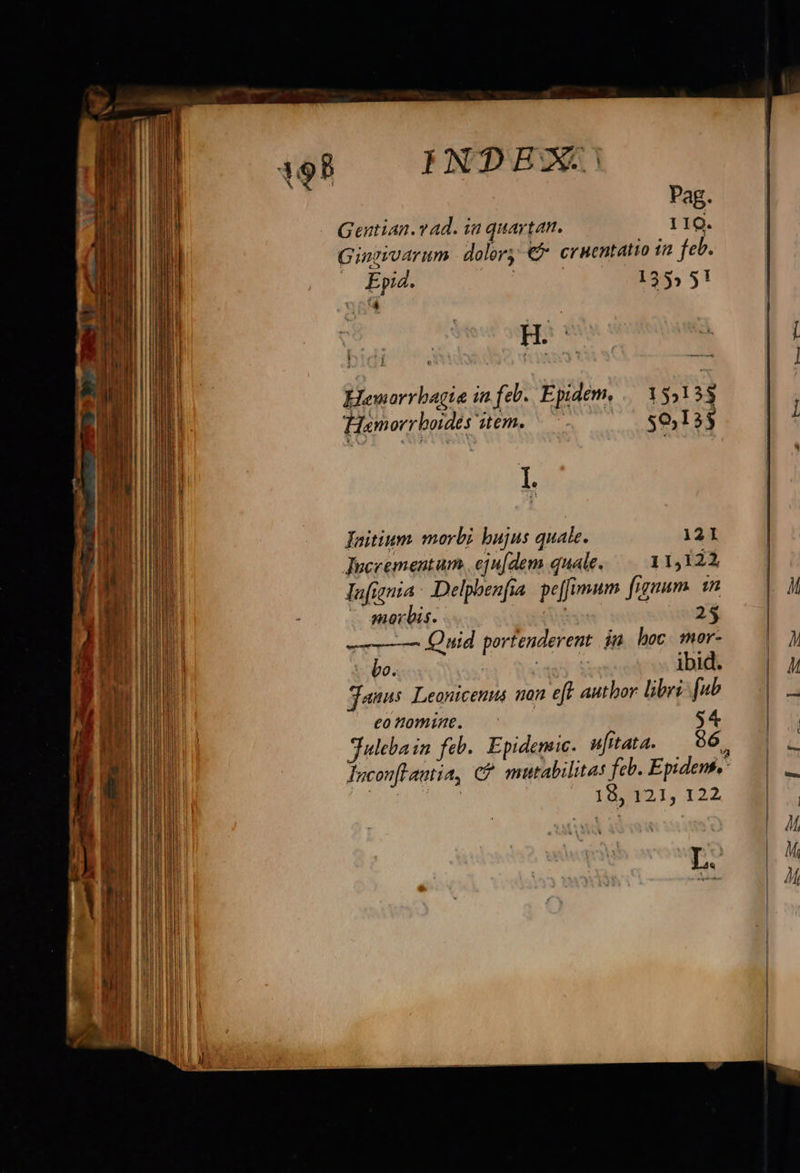 198 INDEX.
Pag.
Gentian. rad. in quartan. 110.
Gingivarum dolor, & cruentatio in feb.
Epid. 135, 51
H.
Hæmorrhagiæ in feb. Epidem. 15,135
Hæmorrhoides item. 50,135
I.
Initium morbi hujus quale. 121
Incrementum ejuſdem quale. 11,122
Inſignia Delphenſia peſſimum ſignum in
morbis. 25
——— Quid portenderent in hoc mor-
bo. ibid.
Janus Leonicenus non eſt author libri ſub
eo nomine. 54
Julebain feb. Epidemic. uſitata. 86
Inconſtantia, & mutabilitas feb. Epidem.
18, 121, 122
L.